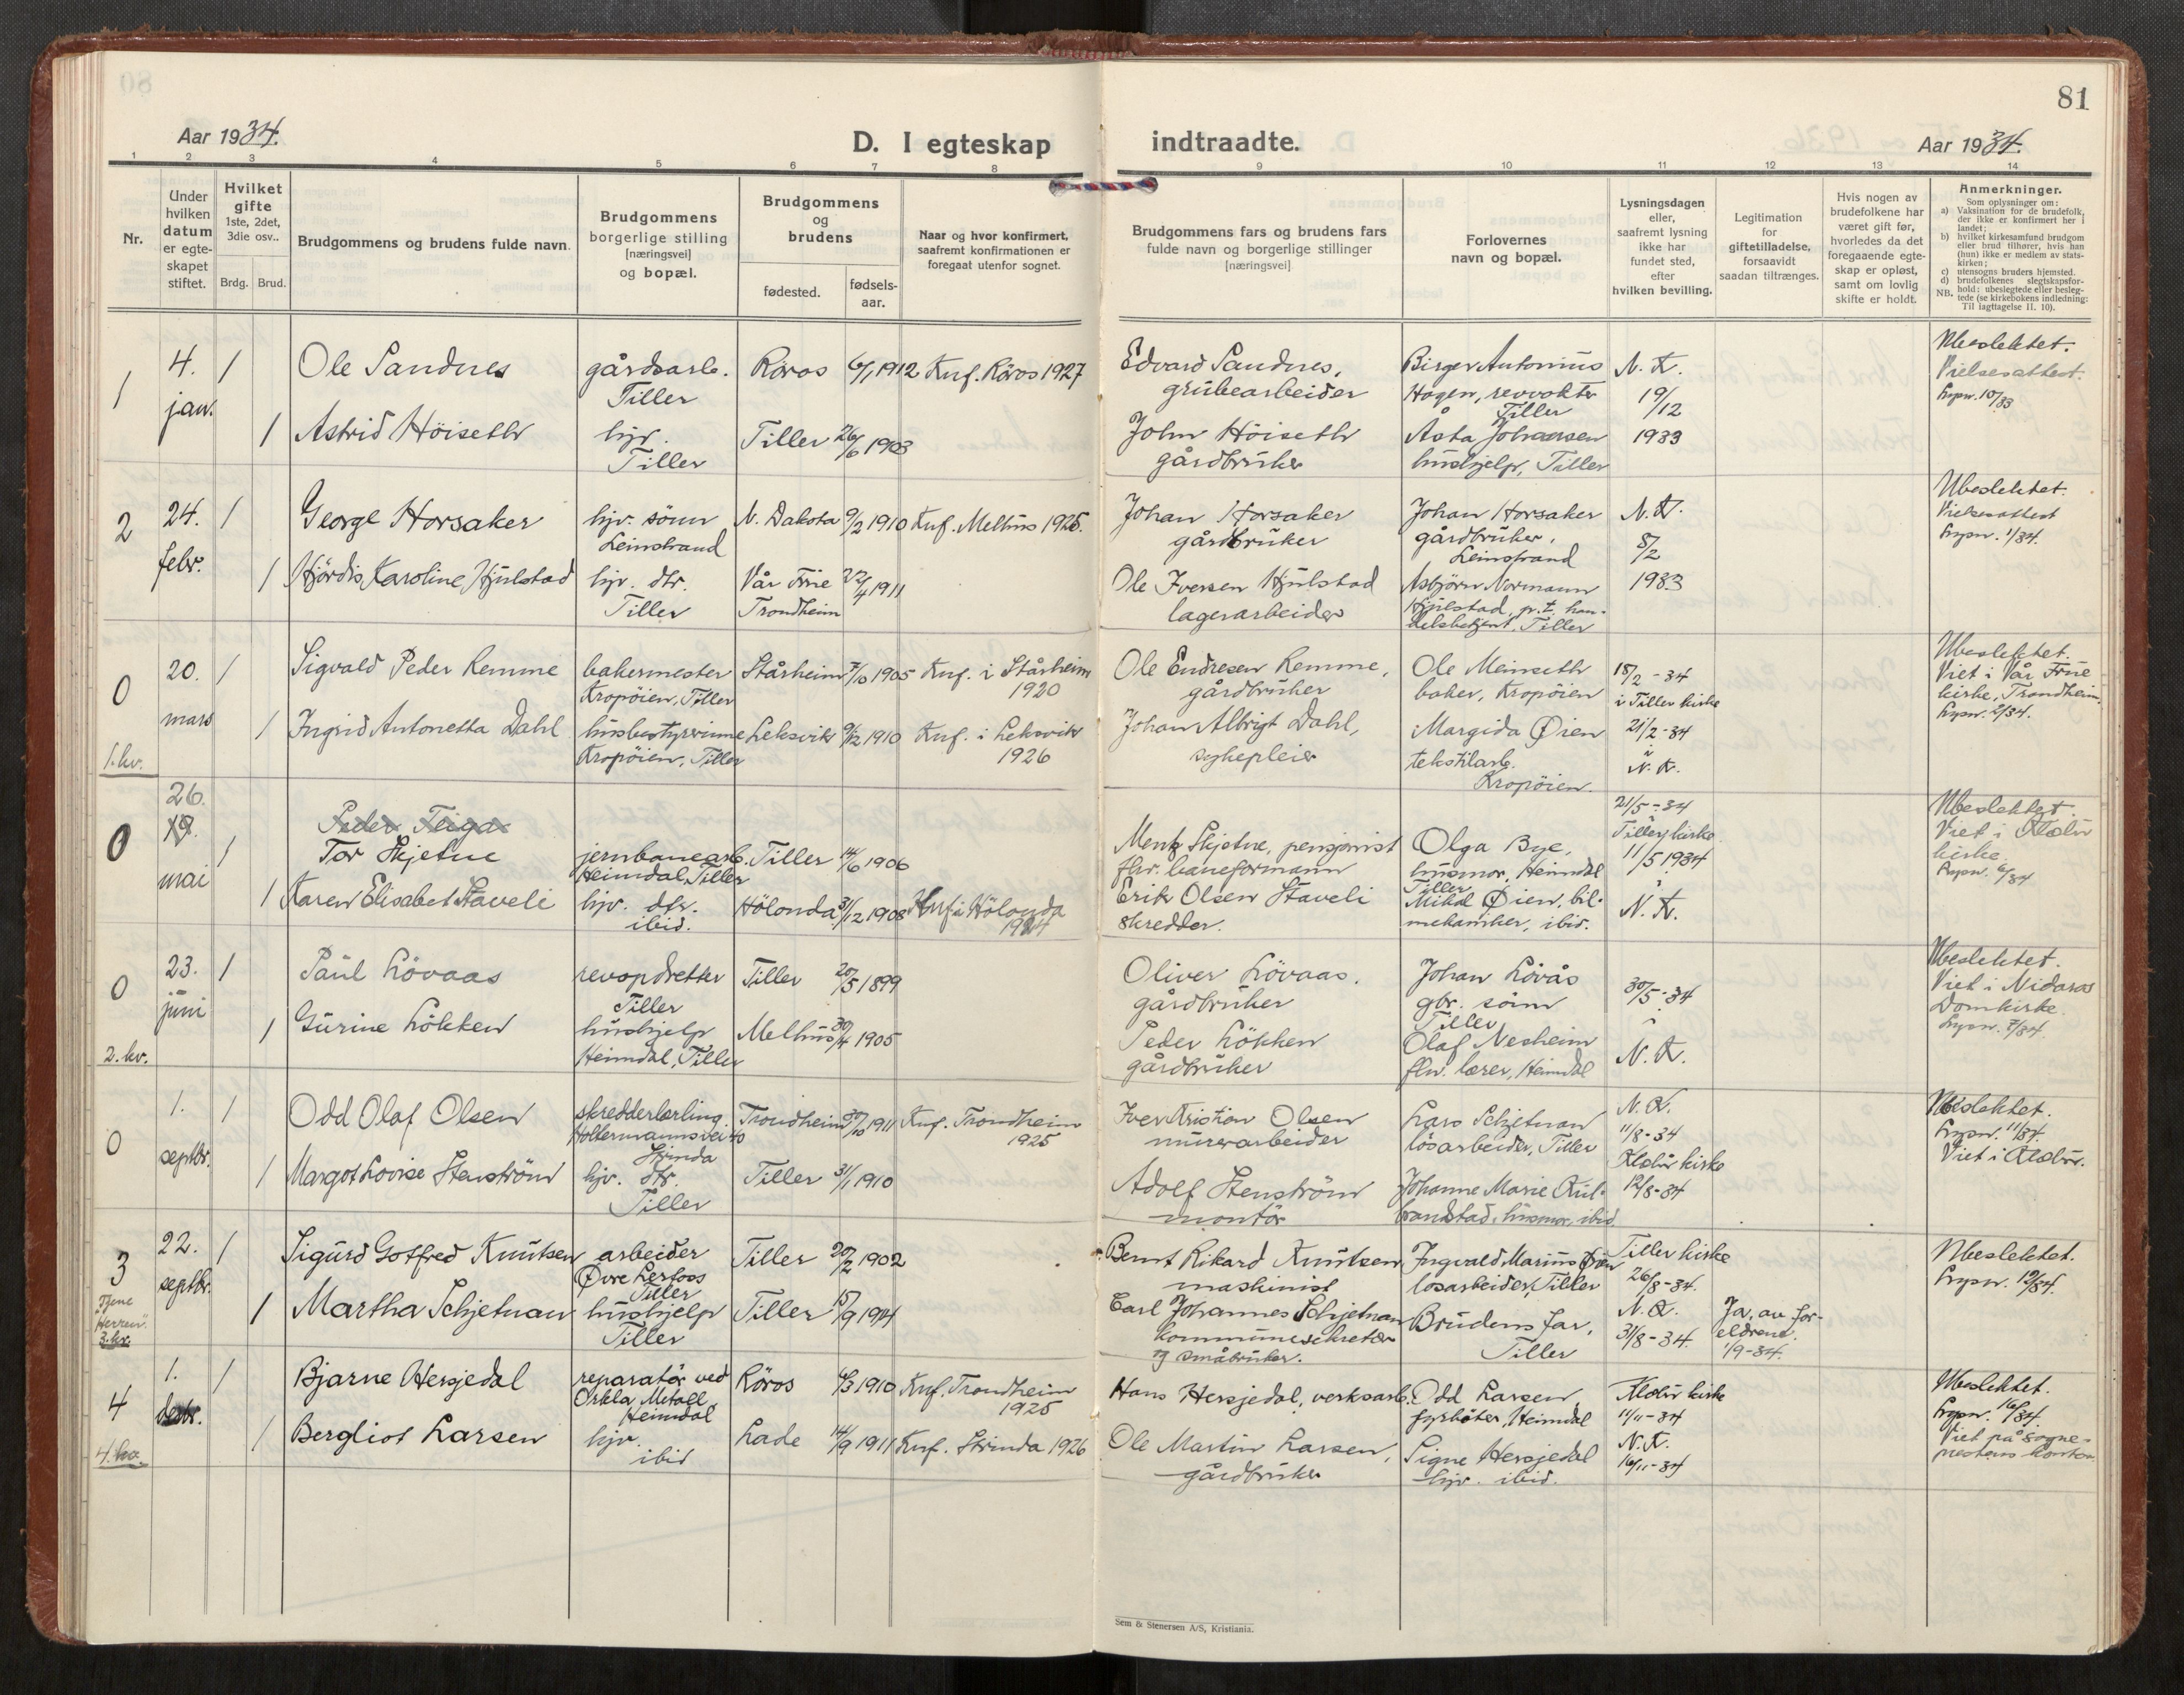 81
Aar 1934.
D. I egteskap indtraadte.
Aar 1934.
1 2 3 4 5 6 7 8 9 10 11 12 13 14
Nr.
Under hvilken datum er egte-skapet stiftet.
Hvilket gifte 1ste, 2det, 3die osv..
Brdg. Brud.
Brudgommens og brudens fulde navn.
Brudgommens borgerlige stilling [næringsvei] og bopæl.
Brudgommens og brudens
fødested.
fødsels-aar.
Naar og hvor konfirmert, saafremt konfirmationen er foregaat utenfor sognet.
Brudgommens fars og brudens fars fulde navn og borgerlige stillinger [næringsvei]
Forlovernes navn og bopæl.
Lysningsdagen eller, saafremt lysning ikke har fundet sted, efter hvilken bevilling.
Legitimation for giftetilladelse, forsaavidt saadan tiltrænges.
Hvis nogen av brudefolkene har været gift før, hvorledes da det foregaaende egte-skap er opløst, samt om lovlig skifte er holdt.
Anmerkninger.
Som oplysninger om:
a) Vaksination for de brudefolk, der ikke er konfirmert her i landet;
b) hvilket kirkesamfund brudgom eller brud tilhører, hvis han (hun) ikke er medlem av stats-kirken;
c) utensogns bruders hjemsted.
d) brudefolkenes slegtskapsfor-hold: ubeslegtede eller besleg-tede (se kirkebokens indledning: Til iagttagelse II. 10).
NB.
1
4. jan.
1
Ole Sandnes
gårdsarb.
Tiller
Röros
6/1 1912
Knf. Röros 1927
Edvard Sandnes,
grubearbeider
Birger Antonius
Hagen, revvokter
Tiller
N. K.
19/12
1933
Ubeslektet.
Vielsesattest.
1
Astrid Höiseth
hjv.
Tiller
Tiller
26/6 1903
John Höiseth
gårdbruker
Åsta Johansen
hushjelp, Tiller
2
24. febr.
1
George Horsaker
hjv. sönn
Leinstrand
N. Dakota
9/2 1910
Knf. Melhus 1925.
Johan Horsaker
gårdbruker
Johan Horsaker
gårdbruker,
Leinstrand
N. K.
8/2
1933
Ubeslektet.
Vielsesattest
1/34.
1
Hjördis Karoline Hjulstad
hjv. dtr.
Tiller
Vår Frue
Trondheim
22/4 1911
Ole Iversen Hjulstad
lagerarbeider
Asbjörn Normann
Hjulstad, p.t. han-
delsbetjent, Tiller
0
20. mars
1
Sigvald Peder Remme
bakermester
Kropöien, Tiller
Stårheim
7/10 1905
Knf. i Stårheim
1920
Ole Endresen Remme,
gårdbruker
Ole Meinseth
baker, Kropöien
18/2 - 34
i Tiller kirke
Ubeslektet.
Viet i Vår Frue
kirke, Trondheim.
2/34.
1. kv.
1
Ingrid Antonetta Dahl
husbestyrerinne
Kropöien, Tiller
Leksvik
9/12 1910
Knf. i Leksvik
1926
Johan Albrigt Dahl,
sykepleier
Margida Øien
tekstilarb.
Kropöien.
21/2 - 34
i
N. K.
0
26.
19.
mai
1
Peder Teiga
Tor Skjetne
jernbanearb.
Heimdal, Tiller
Tiller
14/6 1906
Mentz Skjetne, pensjonist
fhv. baneformann
Olga Bye,
husmor, Heimdal
Tiller
21/5 - 34
i
Tiller kirke
11/5 1934
i
N. K.
Ubeslektet.
Viet i Klæbu
kirke.
6/34
1
Karen Elisabet Staveli
hjv. dtr.
ibid.
Hölonda
31/12 1908
Knf. i Hölonda
1924
Erik Olsen Staveli
skredder.
Mikal Øien, bil-
mekaniker, ibid.
0
23. juni
1
Paul Lövaas
revopdretter
Tiller
Tiller
20/5 1899
Oliver Lövaas,
gårdbruker
Johan Lövås
gbr. sönn
Tiller
30/5 - 34
i
N. K.
Ubeslektet.
Viet i Nidaros
Domkirke.
7/34.
2. kv.
1
Gurine Lökken
hushjelp
Heimdal, Tiller
Melhus
30/4 1905
Peder Lökken
gårdbruker
Olaf Nesheim
fhv. lærer, Heimdal
0
1. septbr.
1
Odd Olaf Olsen
skredderlærling
Holtermannsvei 40
Strinda
Trondheim
30/10 1911
Knf. Trondheim
1925
Iver Kristian Olsen
murerarbeider
Lars Schjetnan
lösarbeider, Tiller
N. K.
11/8 - 34
Klæbu kirke
12/8 - 34
Ubeslektet.
11/34.
Viet i Klæbu.
1
Margot Lovise Stenström
hjv. dtr.
Tiller
Tiller
31/1 1910
Adolf Stenström
montör
Johanne Marie Rul-
brandstad, husmor, ibid.
3
22. septbr.
1
Sigurd Gotfred Knutsen
arbeider
Øvre Lerfoss
Tiller
Tiller
20/2 1902
Bernt Rikard Knutsen
maskinist
Ingvald Marius Øien
losarbeider, Tiller
Tiller kirke
26/8 - 34.
N. K.
31/8 - 34.
Ubeslektet.
10/34.
"Tjene
Herren".
3. kv.
1
Martha Schjetnan
hushjelp
Tiller
Tiller
15/9 1914
Carl Johannes Schjetnan
kommunesekretær
og småbruker.
Brudens far,
Tiller
Ja, av for-
eldrene.
1/9 - 34.
4
1. desbr.
1
Bjarne Hersjedal
reparatör ved
Orkla Metall,
Heimdal
Röros
4/3 1910
Knf. Trondheim
1925
Hans Hersjedal, verksarb.
Odd Larsen
fyrböter, Heimdal
Klæbu kirke
11/11 - 34
N. K.
16/11 - 34
Ubeslektet.
16/34.
Viet på sogne-
prestens kontor.
4. kv.
1
Bergliot Larsen
hjv.
ibid
Lade
14/9 1911
Knf. Strinda 1926
Ole Martin Larsen,
gårdbruker
Signe Hersjedal
hjv. ibid.
Sem & Stenersen A/S, Kristiania.